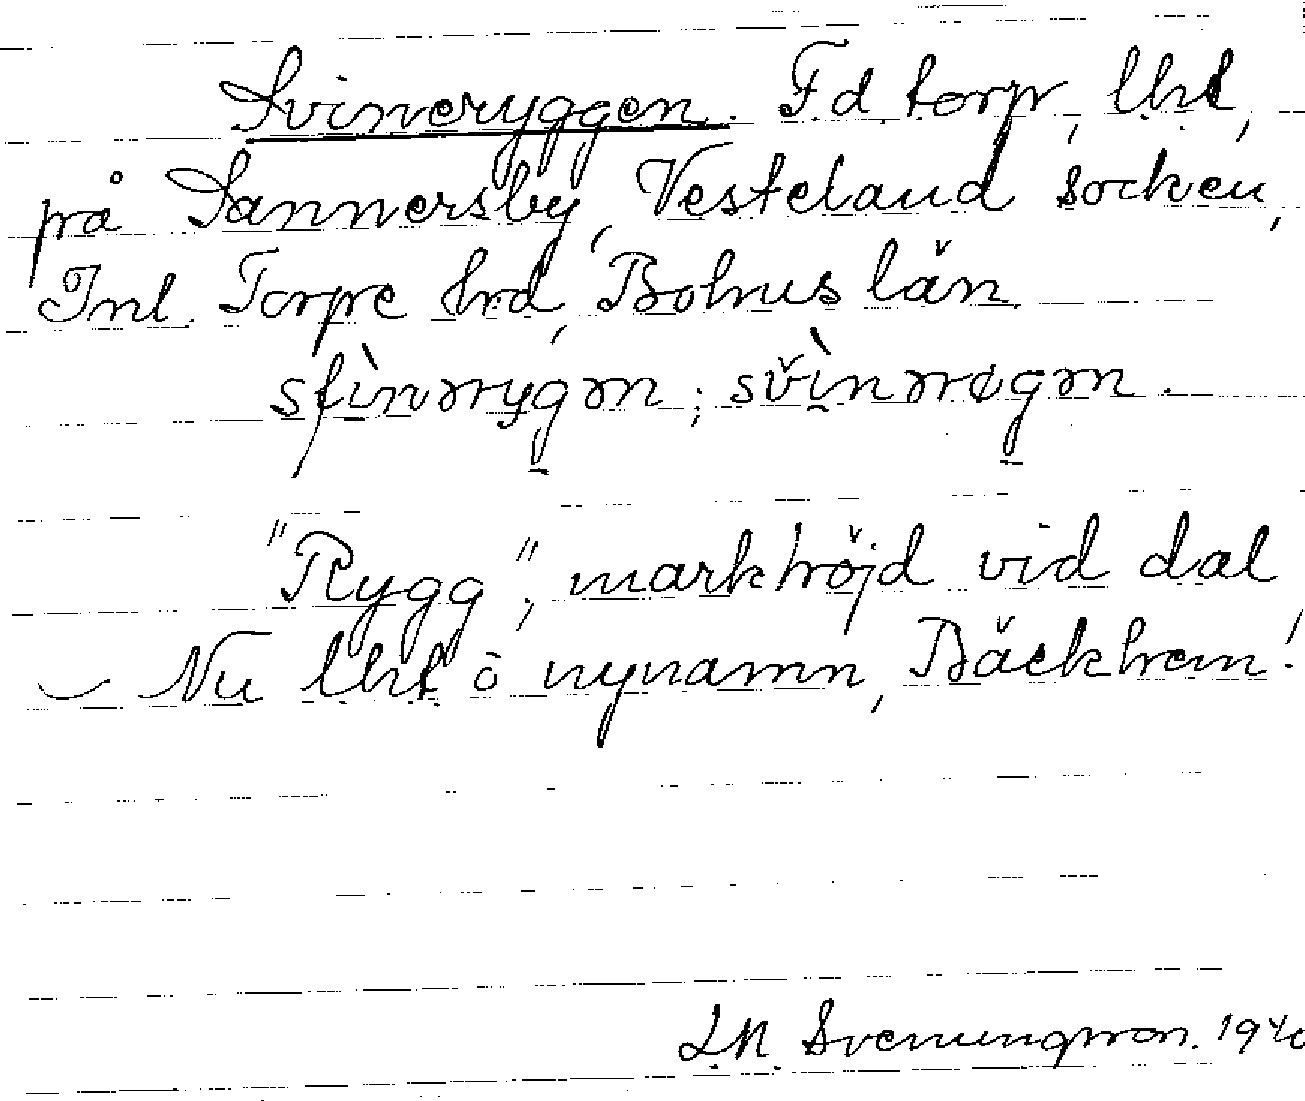 Svineryggen. Fd torp, lht,
på Sannersby, Vesteland socken,
Inl. Torpe hrd, Bohus län.
sfìnərygən; svìnərøgən.
"Rygg", markhöjd vid dal,
– Nu lht o nynamn, Bäckhem!
L.N. Svenungsson. 1940